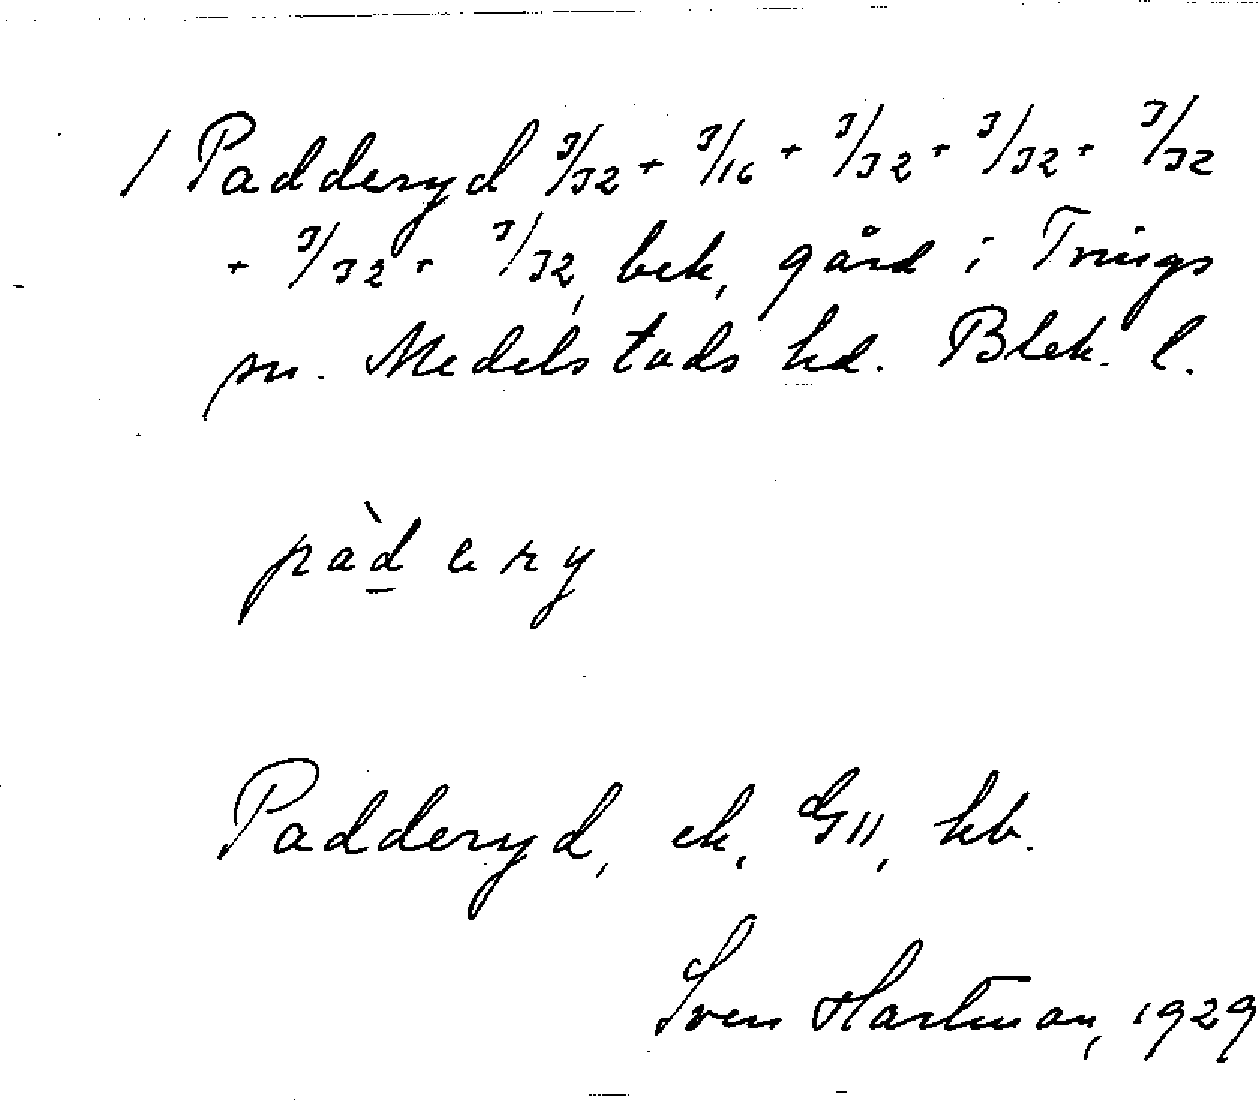 1 Padderyd 3/32 + 3/16 + 3/32 + 3/32 + 3/32
+ 3/32 + 3/32, bek, gård i Tvings
sn. Medelstads hd. Blek. l.
pàd e ry
Padderyd, ek, GII, kb.
Sven Hartman, 1929